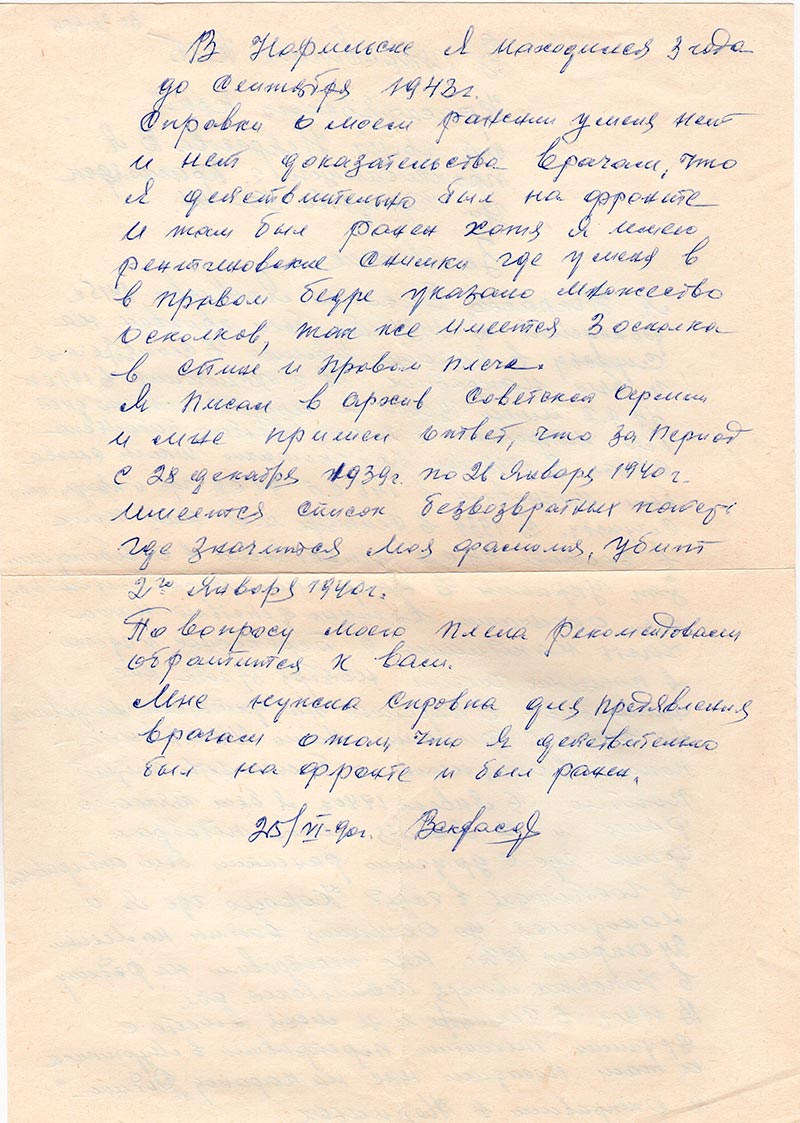 В Норильске я находился 3 года
до Сентября 1943г.
Справки о моем ранении у меня нет
и нет доказательства врачам, что
Я действительно был на фронте
и там был ранен хотя я имею
рентгеновские снимки где у меня в
в правом бедре указано множество
осколков, так же имеется 3 осколка
в спине и правом плече.
Я писал в архив Советской Армии
и мне пришел ответ, что за период
с 28 декабря 1939г. по 26 Января 1940г.
имеется список безвозвратных потерь
где значится моя фамилия, убит
2го Января 1940г.
По вопросу моего плена рекомендовали
обратится к вам.
Мне нужна справка для предявления
врачам о том, что я действительно
был на фронте и был ранен.
25/VI-90г.